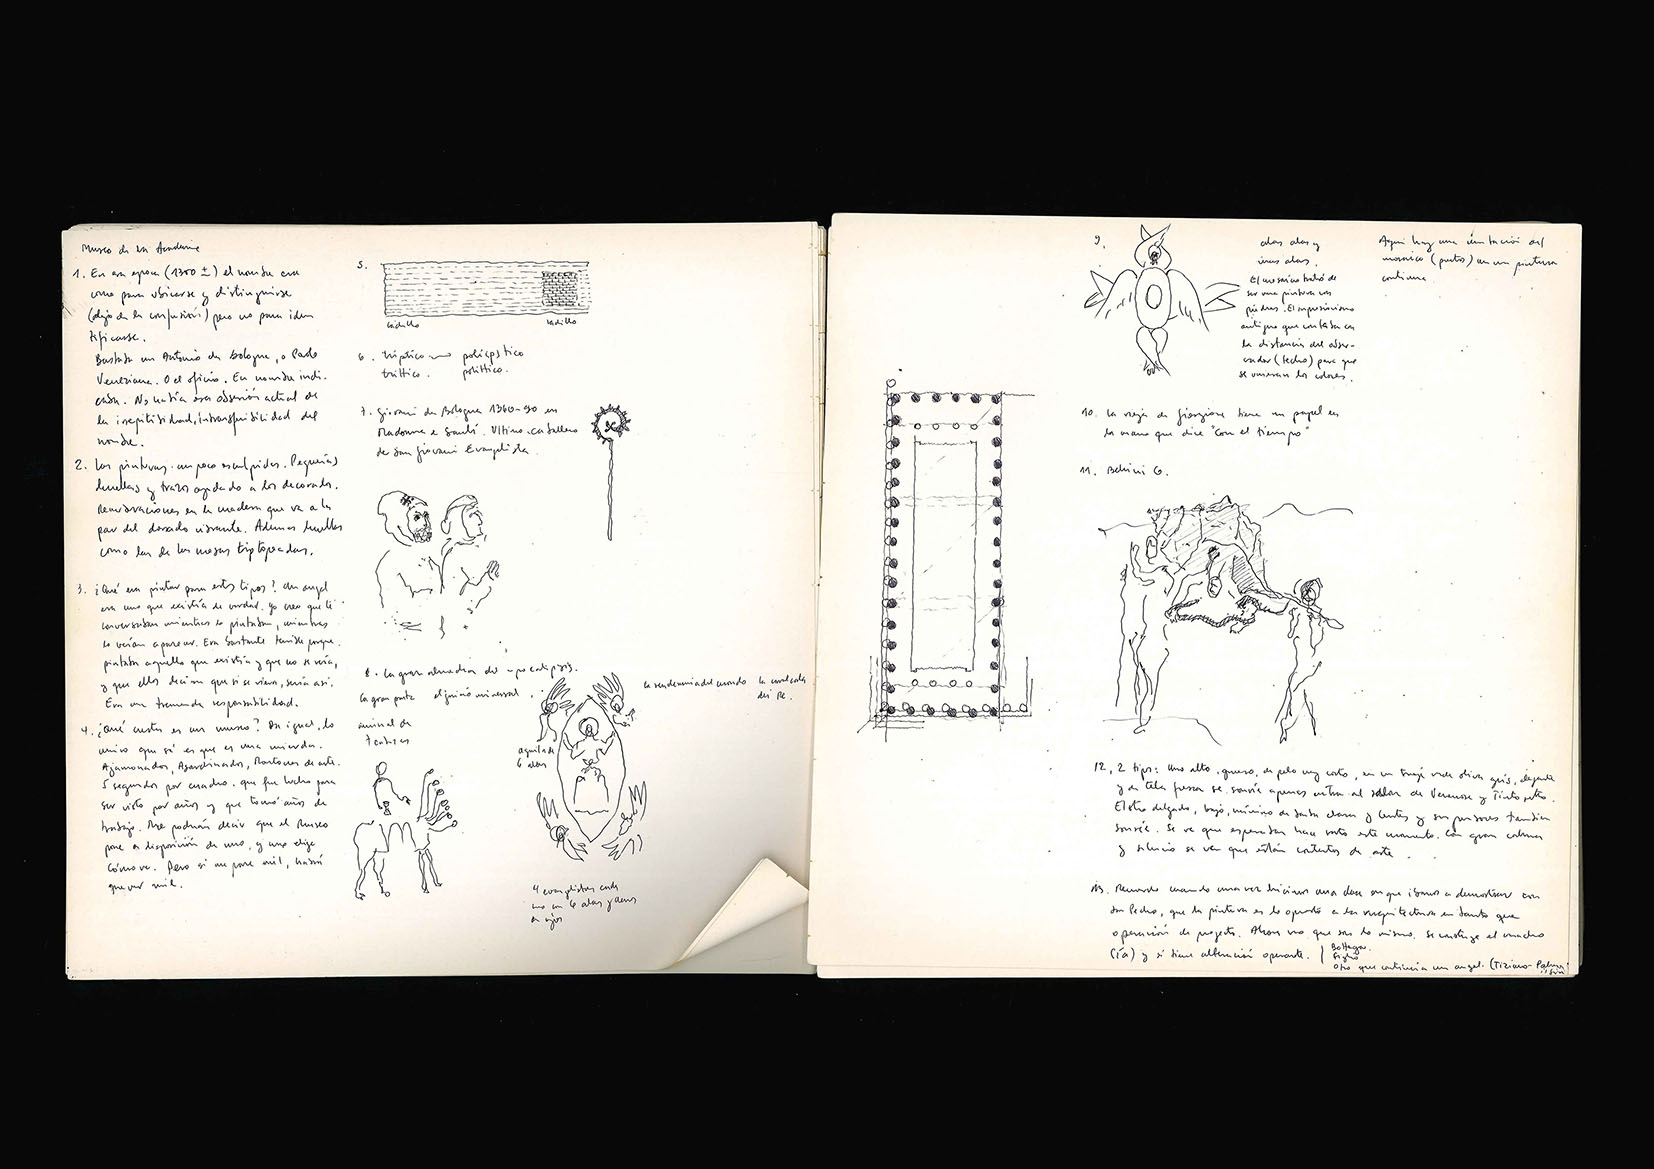 Museo de la Academia
1. En esa epoca (1300 ±) el nombre era
como para ubicarse y distinguirse
(dejo de la confusión) pero no para iden
tificarse.
Bastaba un Antonio da bologna, o Paolo
Veneziana. O el oficio. En nombre indi.
caba. No había esa obsesión actual de
la irrepitibilidad, intransferibilidad del
nombre.
2. Las pinturas un poco esculpidas. Pequeñas
huellas y trazos ayudado a los decorados.
en la madera que va a la
par del dorado vibrante. Ademas huellas
como las de las mesas
3. ¿Qué era pintar para estos tipos? Un angel
era uno que existía de verdad. Yo creo que le
conversaban mientras lo pintaban, mientras
lo veían aparecer. Era bastante terrible porque
pintaban aquello que existía y que no se veía,
y que ellos decían que si se viera, sería así.
Era una tremenda responsabilidad.
4. ¿Qué cresta es un museo? Da igual, lo
unico que sé es que es una mierda.
de arte.
5 segundos por cuadro. que fue hecho para
ser visto por años y que tomó años de
trabajo. Me podrían decir que el Museo
pone a disposición de uno, y uno elige
cómo ve. Pero si me pone mil, habrá
que ver mil.
5.
ladrillo ladrillo
6. triptico polieptico
trittico. polittico.
7. Giovanni da Bologna 1360-90 en
Madonna e Santi. Ultimo caballero
de San Giovanni Evangelista
8. La gran del apocalipsis.
la gran puta el juicio universal
la vendemia del mundo
del Re.
animal de
7 cabezas
aguila de
6 alas
4 evangelistas cada
uno con 6 alas y llenos
de ojos
9.
alas alas y
unas alas.
El mosaico trató de
ser una pintura con
piedras. El impresionismo
antiguo que contaba con
la distancia del obser-
vador (techo) para que
se unieran los colores.
Aqui hay una imitación del
mosaico (puntos) en una pintura
continua
10. La vieja de Giorgione tiene un papel en
la mano que dice "Con el tiempo"
11. Bellini G.
12. 2 tipos: Uno alto, grueso, de pelo muy corto, en un traje verde oliva gris, elegante
y de tela fresca se sonríe apenas entra al salon de Veronese y Tintoretto.
El otro delgado, bajo, mínimo de barba clara y lentes y sin pudores tambien
sonríe. Se ve que esperaban hace rato este momento. Con gran calma
y silencio se ven que están contentos de arte.
13. Recuerdo cuando una vez hicimos una clase en que ibamos a demostrar con
San Pedro, que la pintura es lo opuesto a la arquitectura en tanto que
operación de proyecto. Ahora veo que son lo mismo. Se construye el cuadro
(ía) y si tiene alteración operante.
Bottega
Siglo
otro que continúa un angel. (Tiziano-Palma